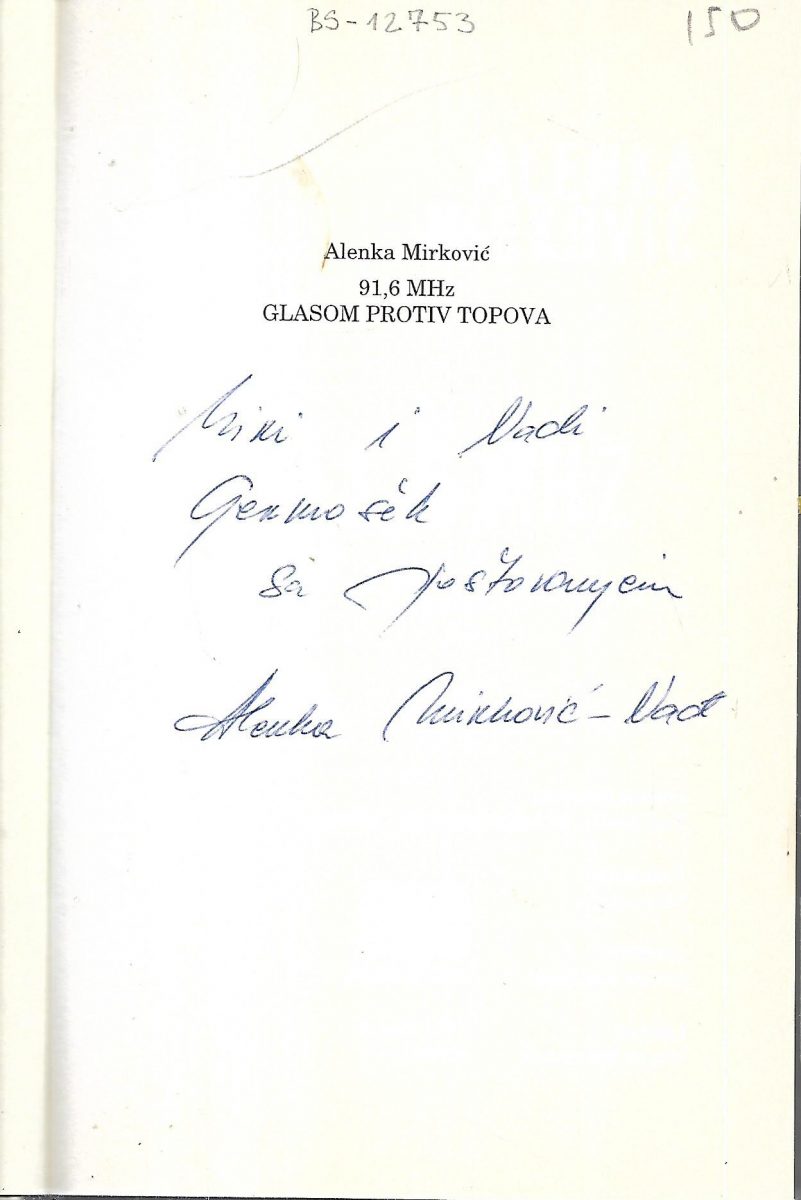 BS-12753
150
Alenka Mirković
91,6 MHz
GLASOM PROTIV TOPOVA
Miki i Nadi
sa poštovanjem
Alenka Mirković-Nađ